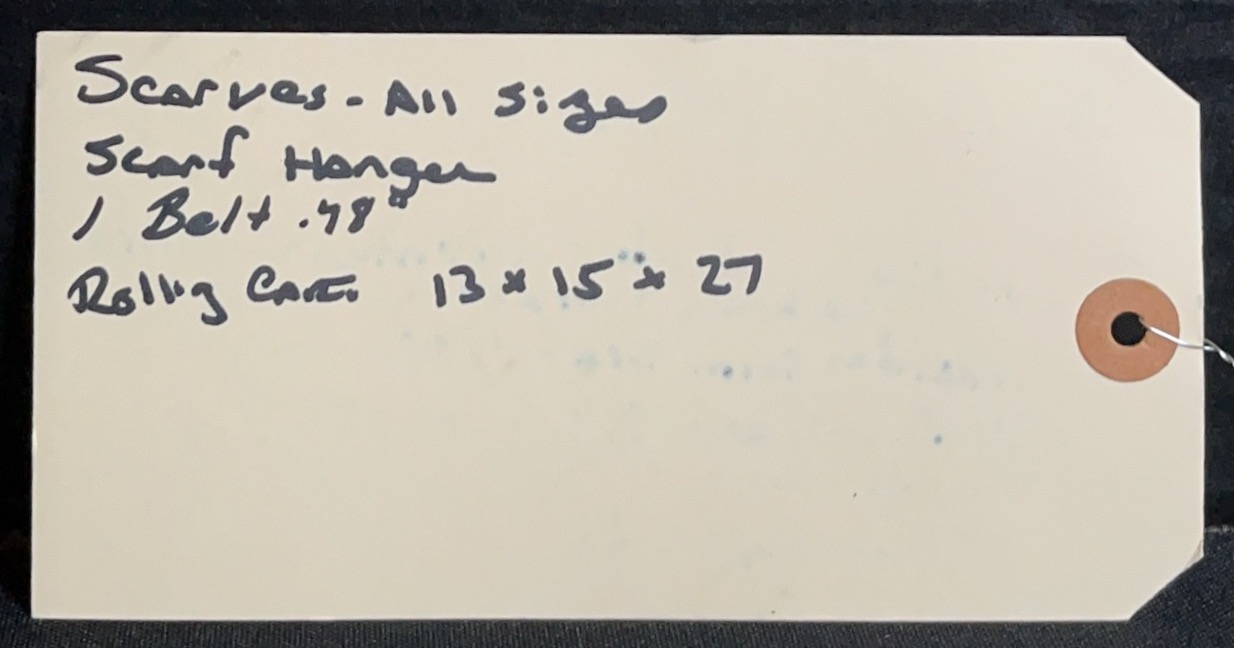 Scarves - All Sizes
Scarf Hanger
1 Belt .48"
Rolling Cart. 13 x 15 x 27